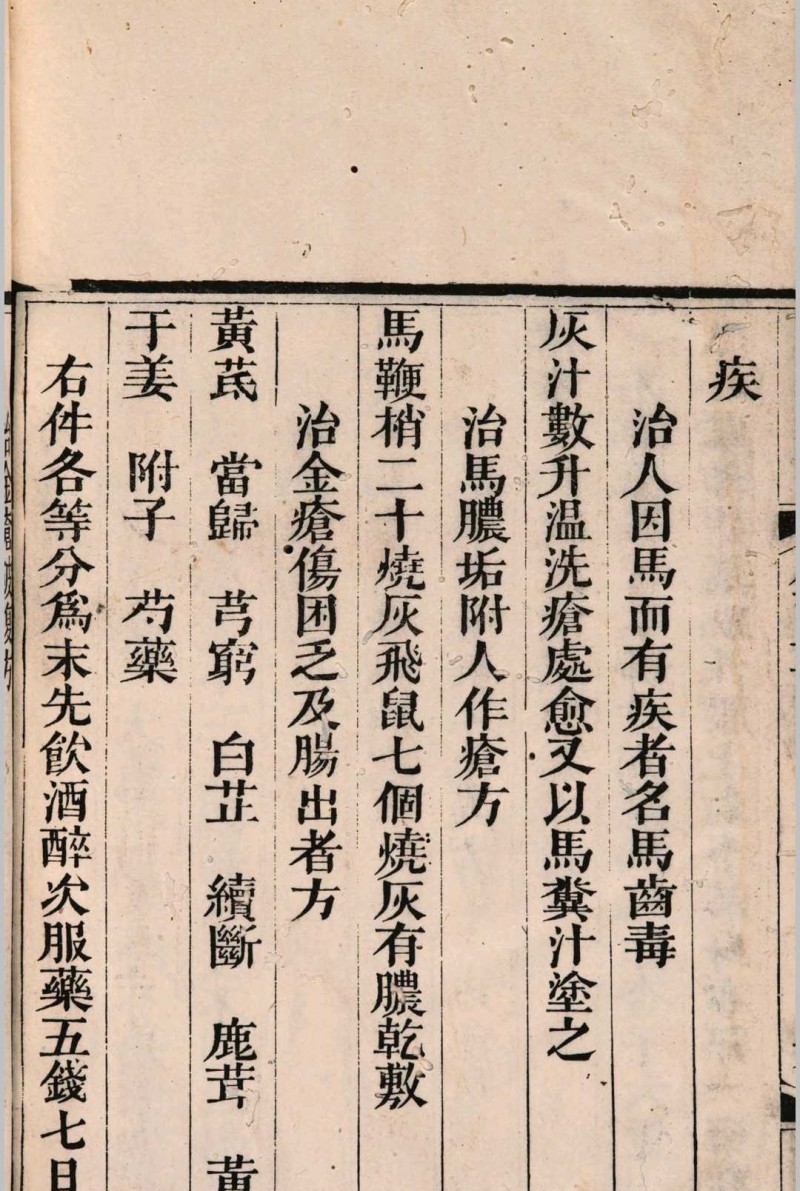 疾
治人因馬而有疾者名馬齒毒
灰汁數升温洗瘡處愈又以馬糞汁塗之
治馬膿垢附人作瘡方
馬鞭梢二十燒灰飛鼠七個燒灰有膿乾敷
治金瘡傷困乏及腸出者方
黃芪　當歸　芎窮　白芷　續斷　鹿茸　黃
干姜　附子　芍藥
右件各等分爲末先飲酒醉次服藥五錢七日